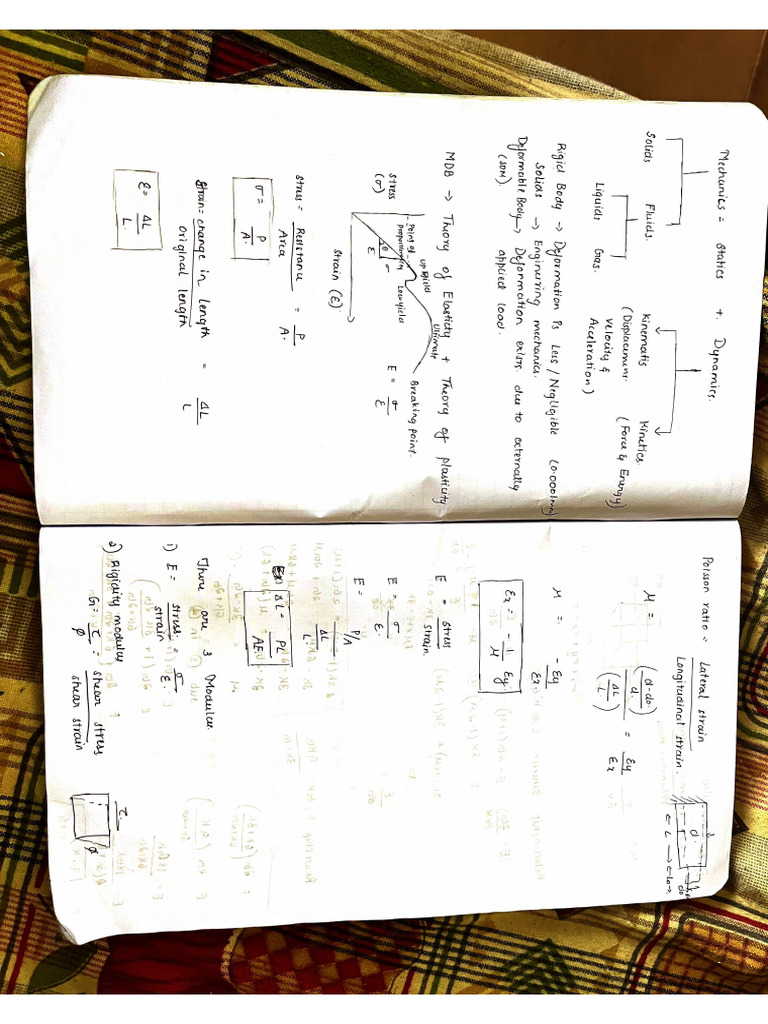 Mechanics = Statics + Dynamics.
Solids Fluids. Kinematis Kinetics.
(Displacement. (Force & Energy)
Liquids Gas. velocity &
Acceleration)
Rigid Body → Deformation Is Less / Negligible (0.0001mm)
Solids → Enginuring mechanics.
Deformable Body → Deformation exists due to externally
(SOM) applied load.
MDB → Theory of Elasticity + Theory of plasticity
Stress
(σ)
Point of
Proportionality
up yield
Low yield
Ultimate
Breaking point.
θ
σ
ε
E = σ/ε
Strain (ε)
Stress = Resistance/Area = P/A.
σ = P/A.
Strain = change in length/original length = ΔL/L
ε = ΔL/L.
Poisson ratio = Lateral strain/Longitudinal strain.
d.
← L → ← Lo →
do
μ = (d-do/d.)/(ΔL/L) = εy/εx
μ = - εy/εx
εx = - 1/μ εy.
E = stress/strain.
E = σ/ε.
E = P/A/ΔL/L.
ΔL = PL/AE.
There are 3 Modulus.
1) E = stress/strain = σ/ε.
2) Rigidity modulus
G = τ/φ = shear stress/shear strain
τ
φ